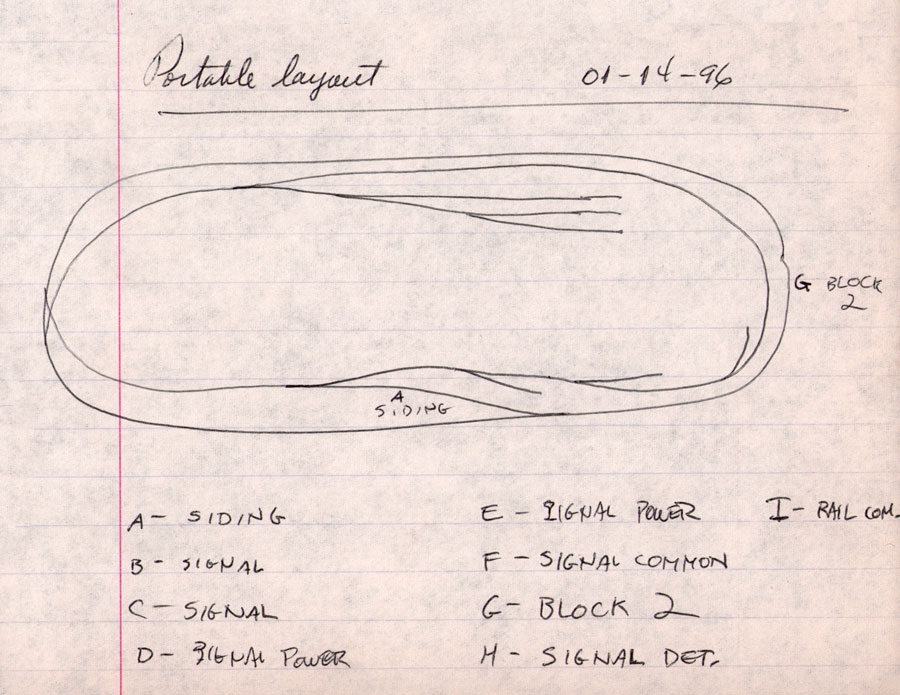 Portable layout 01-14-96
G BLOCK
2
A
SIDING
A - SIDING
B - SIGNAL
C - SIGNAL
D - SIGNAL POWER
E - SIGNAL POWER
F - SIGNAL COMMON
G - BLOCK 2
H - SIGNAL DET.
I - RAIL COM.